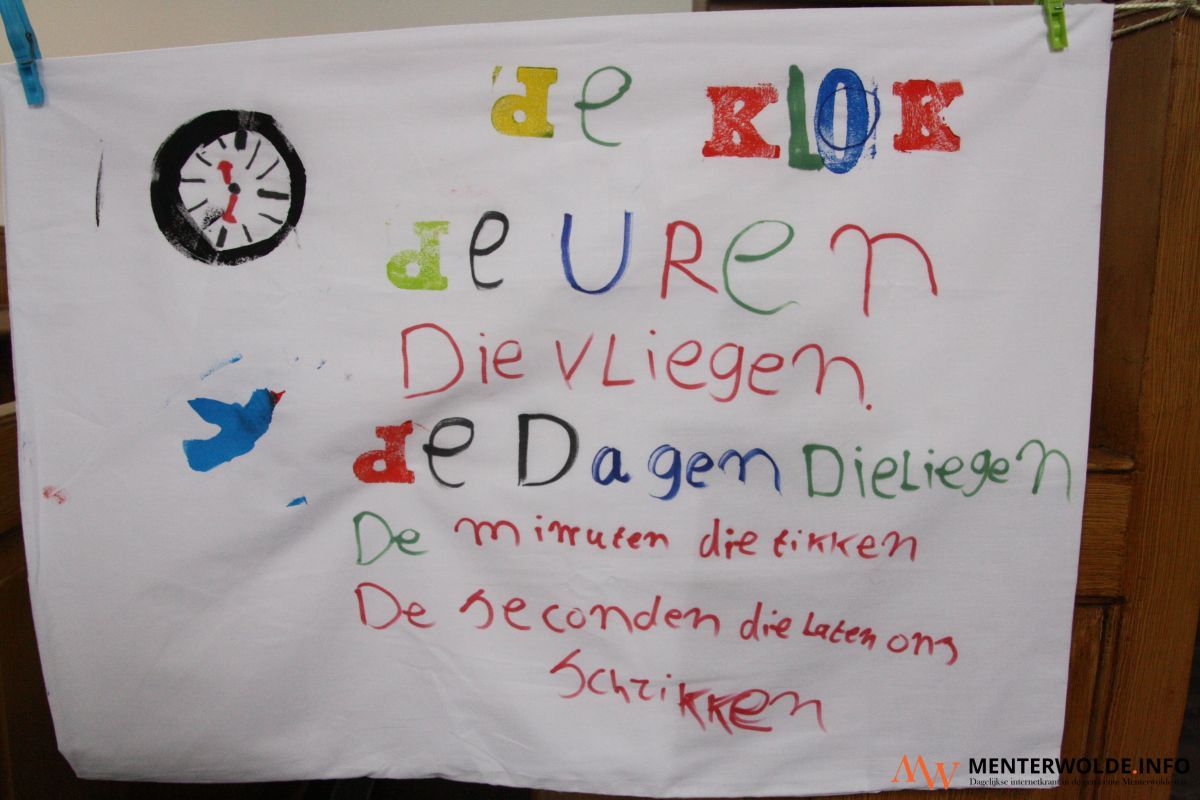 de KLOK
de UREn
Die vLiegen.
de Dagen DieLiegen
De minuten die tikken
De seconden die Laten ons
schrikken
MW MENTERWOLDE.INFO
Dagelijkse internetkrant van de gemeente Menterwolde